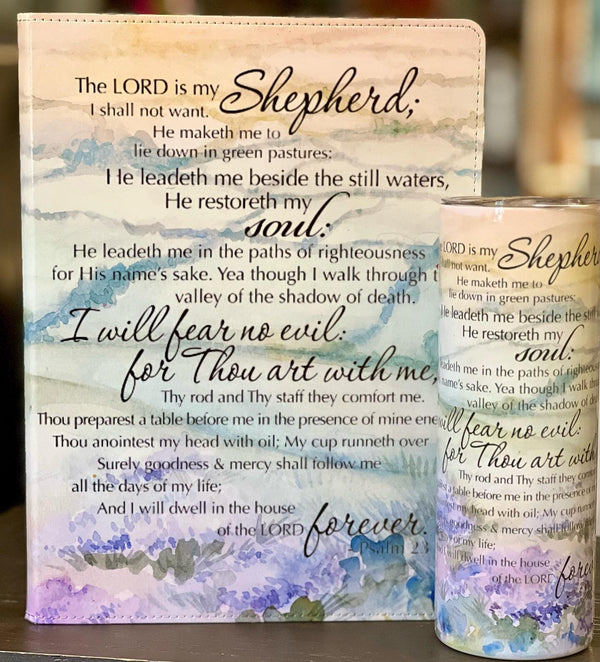 The LORD is my Shepherd;
I shall not want.
He maketh me to
lie down in green pastures:
He leadeth me beside the still waters,
He restoreth my
soul:
He leadeth me in the paths of righteousness
for His name's sake. Yea though I walk through t
valley of the shadow of death.
I will fear no evil:
for Thou art with me,
Thy rod and Thy staff they comfort me.
Thou preparest a table before me in the presence of mine ene
Thou anointest my head with oil; My cup runneth over
Surely goodness & mercy shall follow me
all the days of my life;
And I will dwell in the house
of the LORD forever.
- Psalm 23
LORD is my Shepher
all not want.
He maketh me to
lie down in green pastures:
He leadeth me beside the still w
He restoreth my
soul:
eadeth me in the paths of righteou
name's sake. Yea though I walk thr
valley of the shadow of dea
will fear no evil:
for Thou art with
Thy rod and Thy staff they comfor
st a table before me in the presence of
st my head with oil; My cup runn
goodness & mercy shall follow
of my life;
will dwell in the house
of the LORD forev